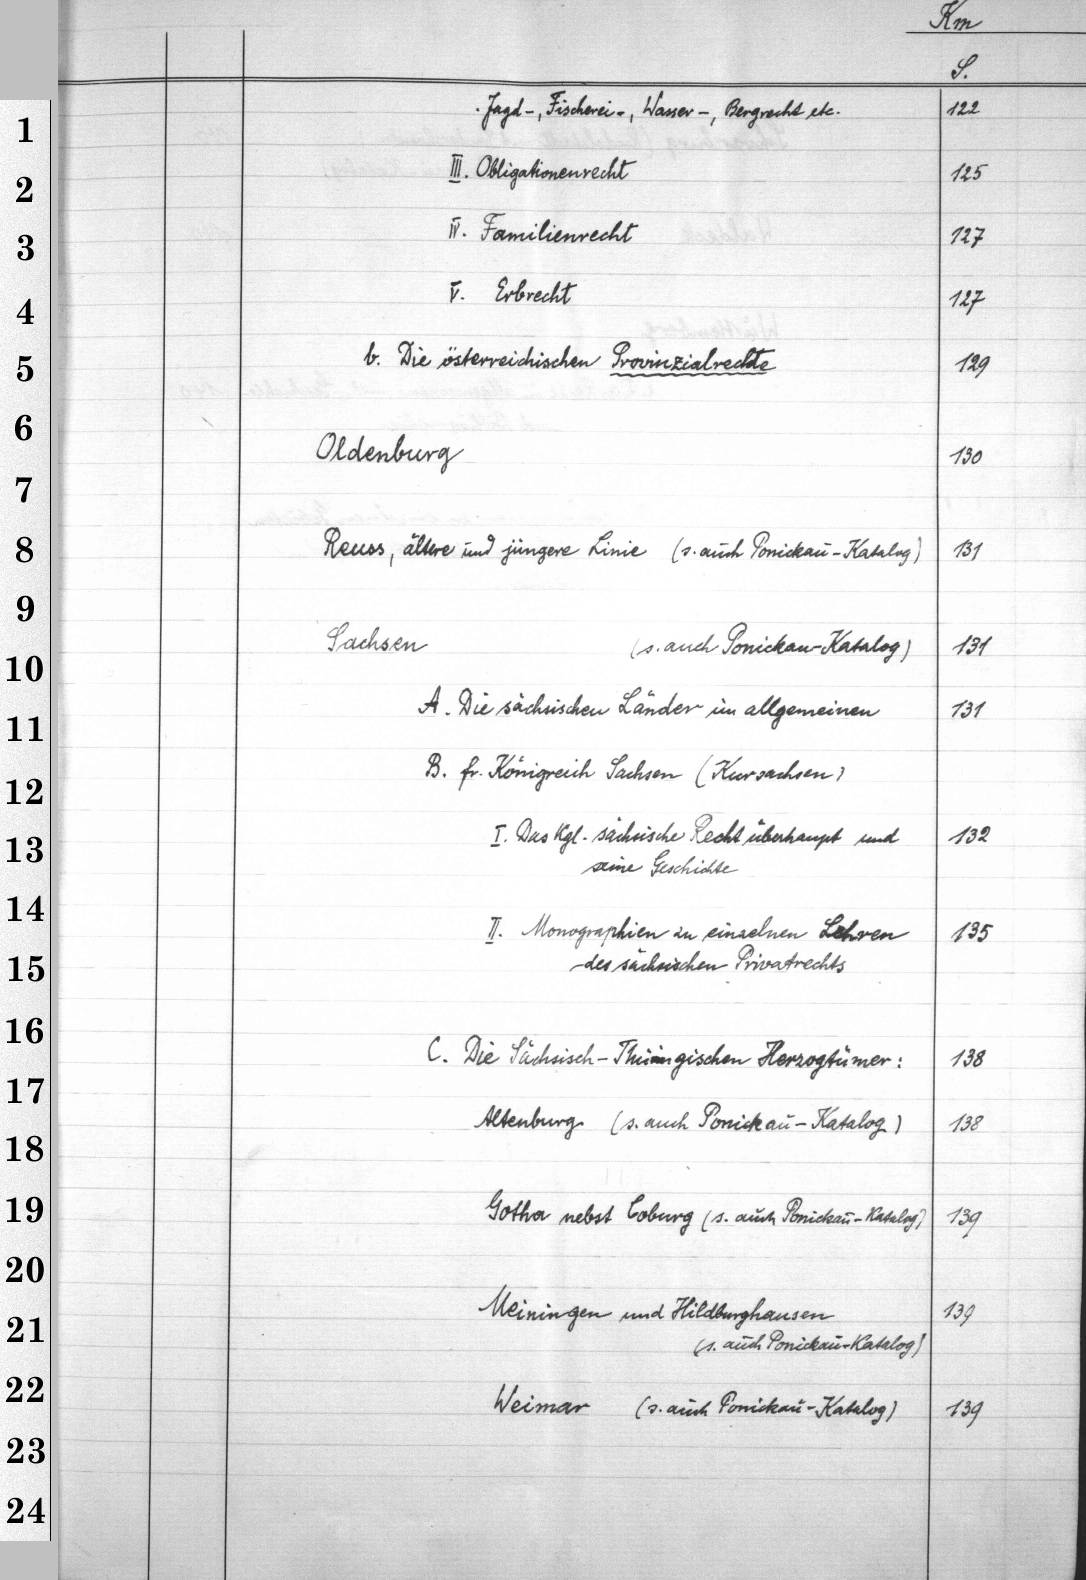 Km
S.
1
Jagd-, Fischerei-, Wasser-, Bergrecht etc. 122
2
III. Obligationenrecht 125
3
IV. Familienrecht 127
4
V. Erbrecht 127
5
b. Die österreichischen Provinzialrechte 129
6
Oldenburg 130
7
8
Reuss, ältere und jüngere Linie (s. auch Ponickau-Katalog) 131
9
10
Sachsen (s. auch Ponickau-Katalog) 131
11
A. Die sächsischen Länder im allgemeinen 131
12
B. fr. Königreich Sachsen (Kursachsen)
13
I. Das Kgl. sächsische Recht überhaupt und 132
seine Geschichte
14
II. Monographien zu einzelnen Lehren 135
15
des sächsischen Privatrechts
16
C. Die Sächsisch-Thüringischen Herzogtümer: 138
17
18
Altenburg (s. auch Ponickau-Katalog) 138
19
Gotha nebst Coburg (s. auch Ponickau-Katalog) 139
20
21
Meiningen und Hildburghausen 139
(s. auch Ponickau-Katalog)
22
Weimar (s. auch Ponickau-Katalog) 139
23
24